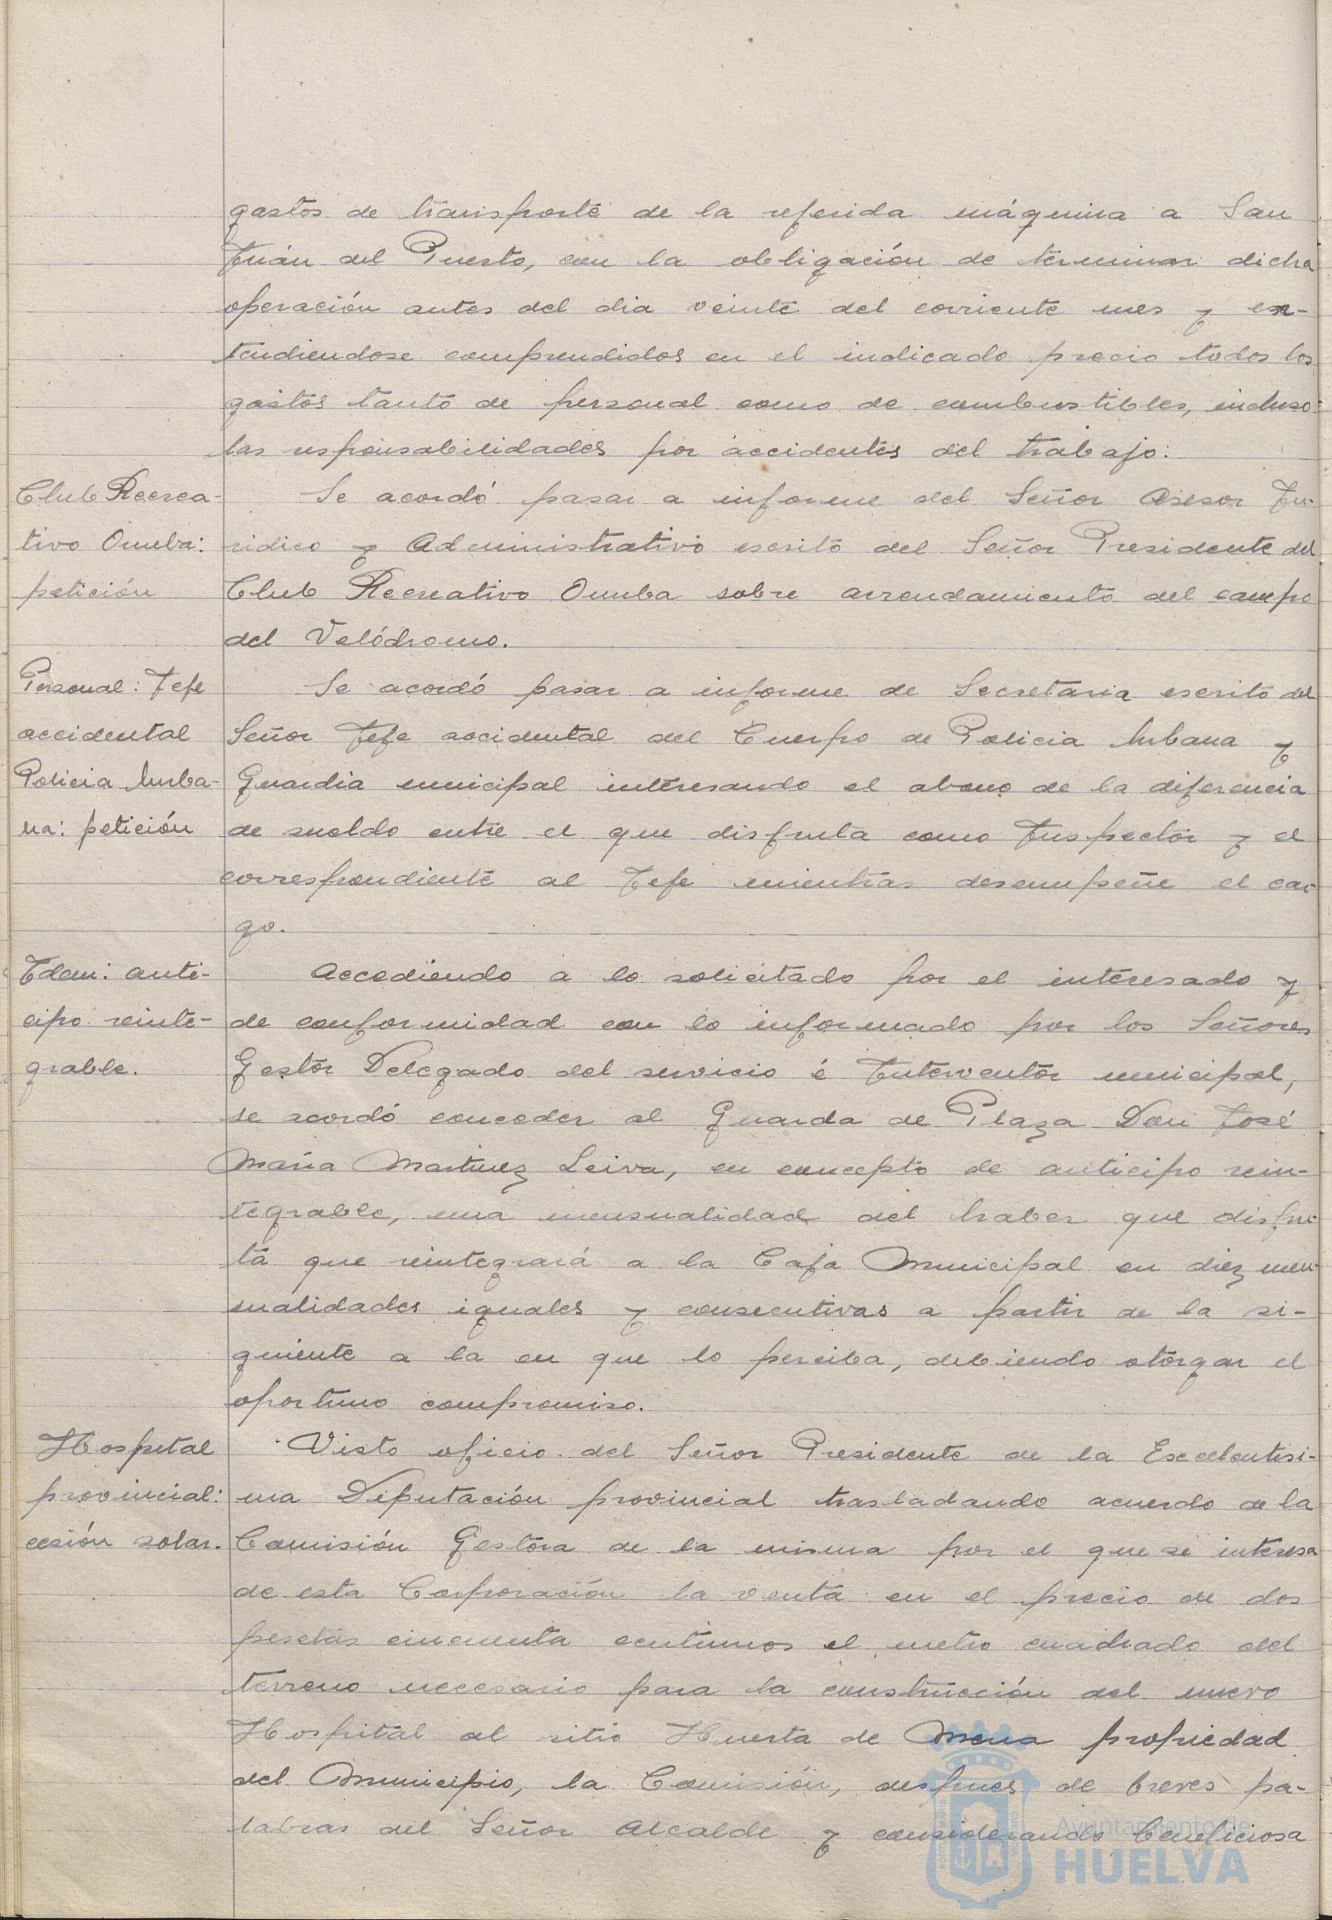 gastos de transporte de la referida máquina a San
Juán del Puerto, con la obligación de terminar dicha
operación antes del dia veinte del corriente mes y en-
tendiendose comprendidos en el indicado precio todos los
gastos tanto de personal como de combustibles, incluso
las responsabilidades por accidentes del trabajo.
Club Recrea-
tivo Onuba:
petición
Se acordó pasar a informe del Señor Asesor Ju-
ridico y Administrativo escrito del Señor Presidente del
Club Recreativo Onuba sobre arrendamiento del campo
del Velódromo.
Personal: Jefe
accidental
Policia Urba-
na: petición
Se acordó pasar a informe de Secretaria escrito del
Señor Jefe accidental del Cuerpo de Policia Urbana y
Guardia municipal interesando el abono de la diferencia
de sueldo entre el que disfruta como Inspector y el
correspondiente al Jefe mientras desempeñe el car-
go.
Idem: anti-
cipo reinte-
grable.
Accediendo a lo solicitado por el interesado y
de conformidad con lo informado por los Señores
Gestor Delegado del servicio é Interventor municipal,
se acordó conceder al Guarda de Plaza Don José
Maria Martinez Leiva, en concepto de anticipo rein-
tegrable, una mensualidad del haber que disfru-
ta que reintegrará a la Caja Municipal en diez men-
sualidades iguales y consecutivas a partir de la si-
guiente a la en que lo perciba, debiendo otorgar el
oportuno compromiso.
Hospital
provincial:
cesión solar.
Visto oficio del Señor Presidente de la Excelentisi-
ma Diputación provincial trasladando acuerdo de la
Comisión Gestora de la misma por el que se interesa
de esta Corporación la venta en el precio de dos
pesetas cincuenta centimos el metro cuadrado del
terreno necesario para la construcción del nuevo
Hospital al sitio Huerta de Mena propiedad
del Municipio, la Comisión, despues de breves pa-
labras del Señor Alcalde y considerando beneficiosa
Ayuntamiento de
HUELVA